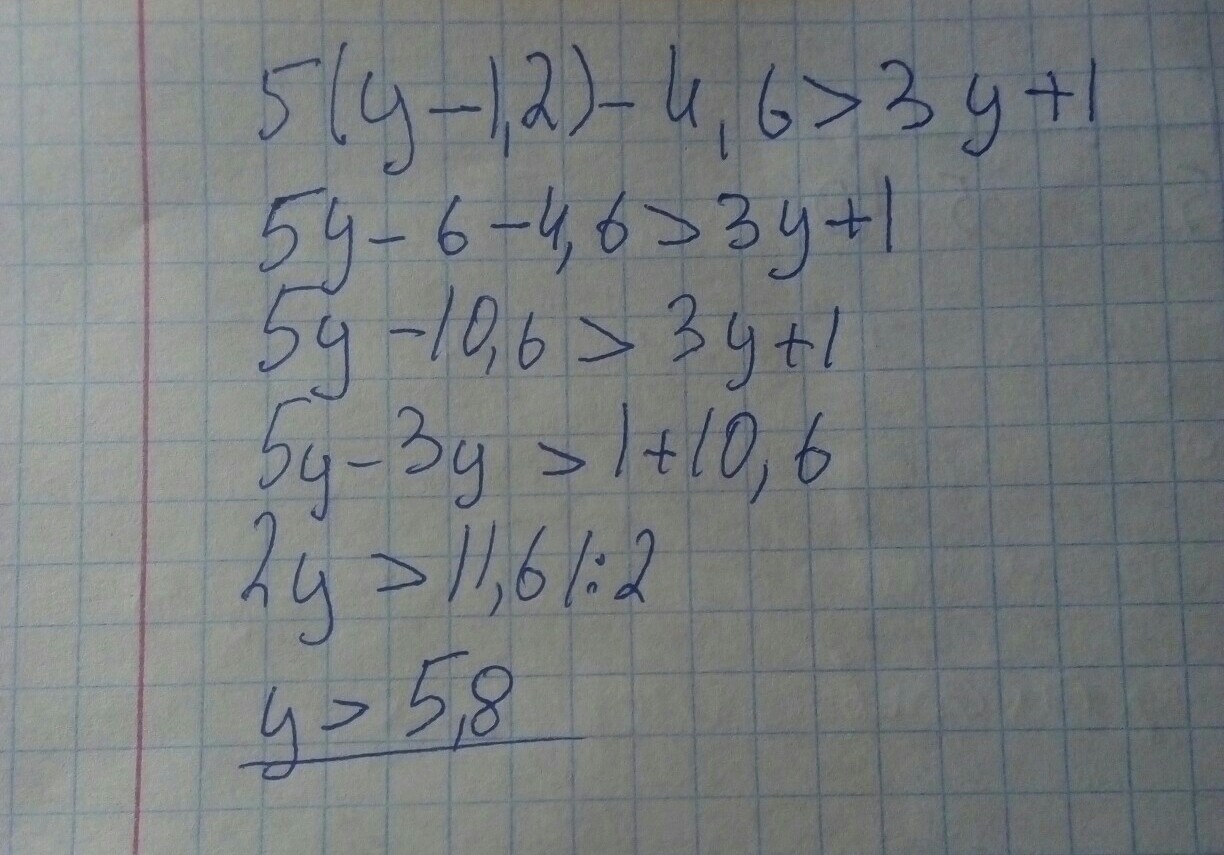 5(y-1,2)-4,6>3y+1
5y-6-4,6>3y+1
5y-10,6>3y+1
5y-3y>1+10,6
2y>11,6/:2
y>5,8